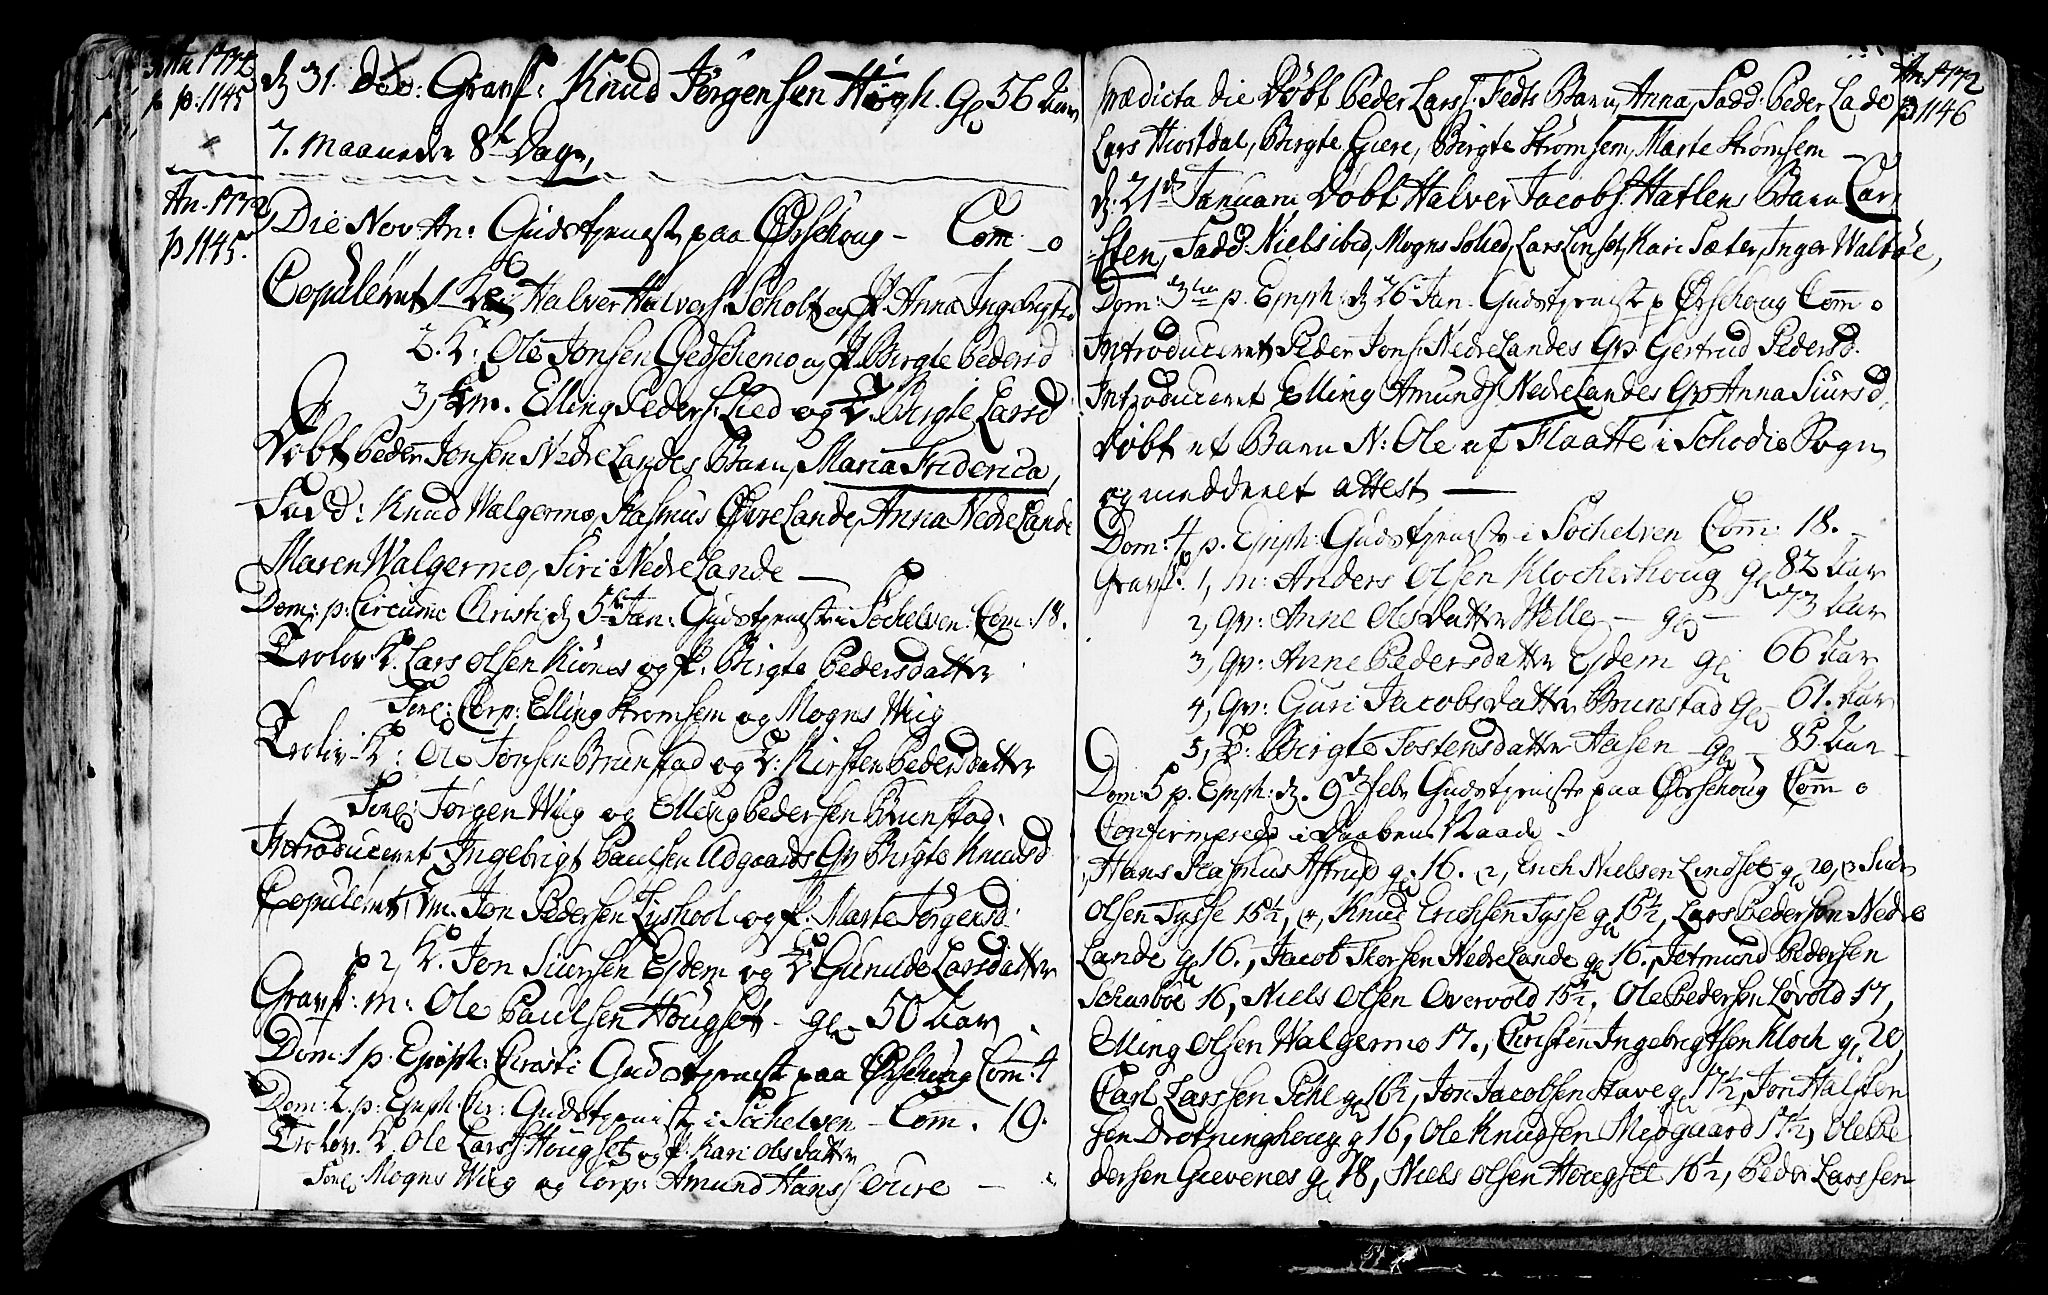 An. 1772
p. 1145
d. 31. dec: Gravf: Knud Jörgensen Högh. gl 56 Aar
7. Maaneder 8te Dage,
An. 1772
p 1145.
Die Nov. An: Gudstjenest paa Ørschoug - Com - o
Copuleret 1 K: Halver Halvers: Scholt og P. Anna Ingebrigtsd
2. K: Ole Jonsen Gedschemo og P. Birgte Pedersd
3, Em. Elling Peders: Lied og E. Birgte Larsd
Døbt Peder Jonsen Nedre Landes Barn, Maria Friderica,
Fadd: Knud Walgermo, Rasmus Øvre Lande, Anna Nedre Lande
Maren Walgermo, Siri Nedre Lande —
Dom: p: Circumc Christi d 5te Jan: Gudstjeneste i Söchelven. Com: 18.
Trolov. K. Lars Olsen Kiönes og P. Birgte Pedersdatter
Forl: Corp: Elling Strömsem og Mogns Wiig
Trolov. K: Ole Jonsen Brunstad og E: Kirsten Pedersdatter
Forl: Jörgen Wiig og Elling Pedersen Brunstad.
Introduceret Ingebrigt Paulsen Udgaards Qv Birgte Knudsd
Copuleret, 1, Em. Jon Pedersen Lyshool og P. Marte Jörgensd:
2, K. Jon Siursen Esdem og E Gunilde Larsdatter
Gravf: m: Ole Paulsen Hougset - gl - 50 Aar
Dom: 1 p. Epiph: Christi Gudstjenest paa Ørschoug Com: 4
Dom: 2. p: Epiph: Gudstjeneste i Söchelven - Com. 19.
Trolov. K. Ole Larss: Hougset og P. Kari Olsdatter
Forl: Mogns Wiig og Corp: Amund Hanss: Oure —
An. 1772
p 1146
Prædicta die Döbt Peder Larss: Fedts Barn, Anna, Fadd: Peder Lade
Lars Hiortdal, Birgte Giære, Birgte Strömsem, Marte Strömsem —
d: 21de Januarii Döbt Halver Jacobs: Hatlens Barn Car
sten, Fadd: Niels ibid, Mogns Solied, Lars Linset, Kari Sæter, Inger Walböe,
Dom: 3tia p. Epiph: d 26 Jan. Gudstjenest p Ørschoug Com o
Introduceret Peder Jons: Nedre Landes Qv Gertrud Pedersd.
Introduceret Elling Amunds: Nedre Landes Qv Anna Siursd,
Döbt et Barn N: Ole af Flaatte i Schodie Sogn
og meddeelt attest —
Dom: 4 p. Epiph: Gudstjeneste i Söchelven Com: 18.
Gravf: 1, m: Anders Olsen Klocherhoug gl 82 Aar
2, Qv: Anne Olsdatter Welle - gl - 73 Aar
3, Qv: Anne Pedersdatter Esdem gl 66 Aar
4, Qv: Guri Jacobsdatter Brunstad gl 61. Aar
5, E: Birgte Tostensdatter Aasen - gl - 85 Aar -
Dom: 5 p. Epiph: d. 9de Febr Gudstjeneste paa Ørschoug Com o
Confirmerede i Daabens Naade -
Hans Rasmus Astrup gl 16. 2, Erich Nielsen Lindset gl 20, 3 Siur
Olsen Tysse 15½, 4, Knud Erichsen Tysse gl 15½, Lars Pedersen Nedre
Lande gl 16., Jacob Siersen Nedre Lande gl 16., Jetmund Pedersen
Scharböe 16, Niels Olsen Overvold 15½, Ole Pedersen Lövold 17,
Elling Olsen Walgermo 17., Christen Ingebrigtsen Kloch gl 20,
Carl Larssen Pihl gl 16½, Jon Jacobsen Stave gl 17½, Jon Halsten
sen Drotninghoug gl 16, Ole Knudsen Medgaard 17½, Ole Pe
dersen Gievenes gl 18, Niels Olsen Hougset 16½, Peder Larssen